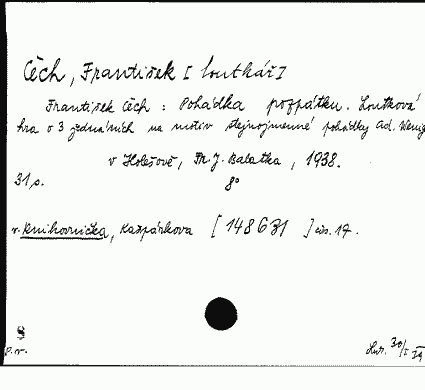 Čech, František [loutkář]
František Čech : Pohádka pozpátku. Loutková
hra o 3 jednáních na motiv stejnojmenné pohádky Ad. Weniga
v Holešově, Fr. J. Balatka, 1938.
31 s. 8°
v. Knihovnička, Kašpárkova [148631] čís. 17.
8
p.v.
30/I